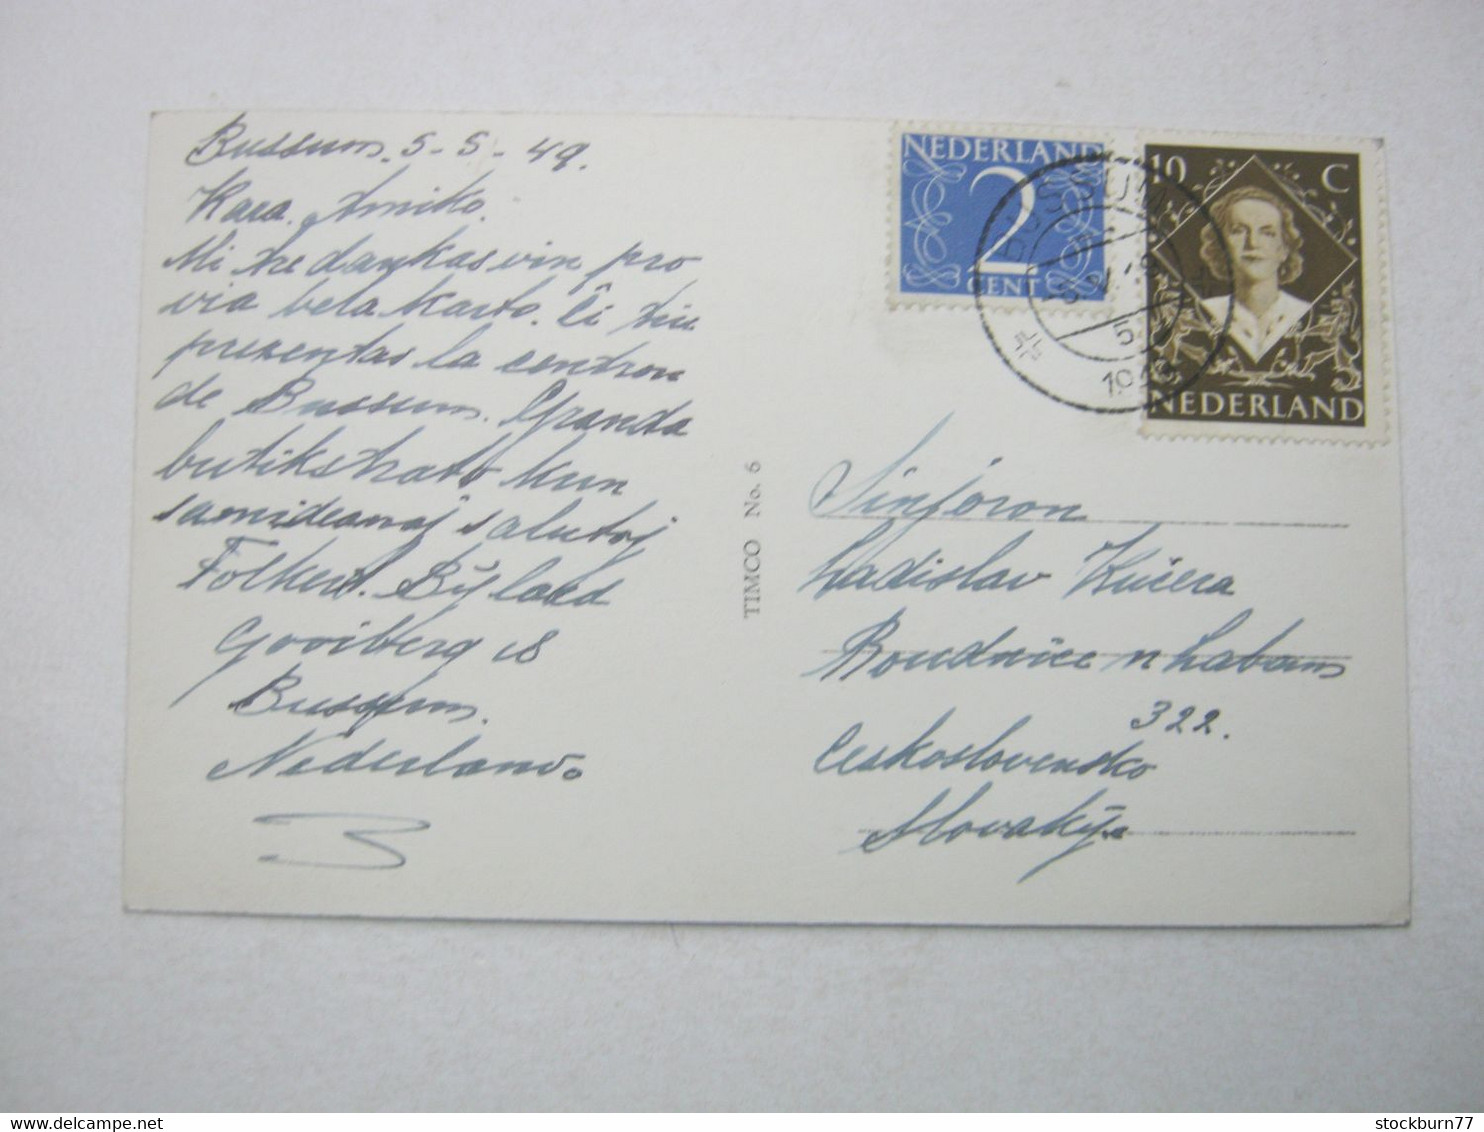 Bussum. 5-5-49.
Kara. Amiko.
Mi tre dankas vin pro
via bela karto. Ĉi tiu
prezentas la centron
de Bussum. Granda
butikstrato kun
samideanaj salutoj
Folkert. Bijlard
Gooiberg 18
Bussum.
Nederland.
NEDERLAND
2
CENT
10 C
NEDERLAND
BUSSUM
1949
TIMCO No. 6
Sinjoron
Ladislav Kučera
Roudnice n Labem
322.
Ceskoslovensko
Slovakije
stockburn77